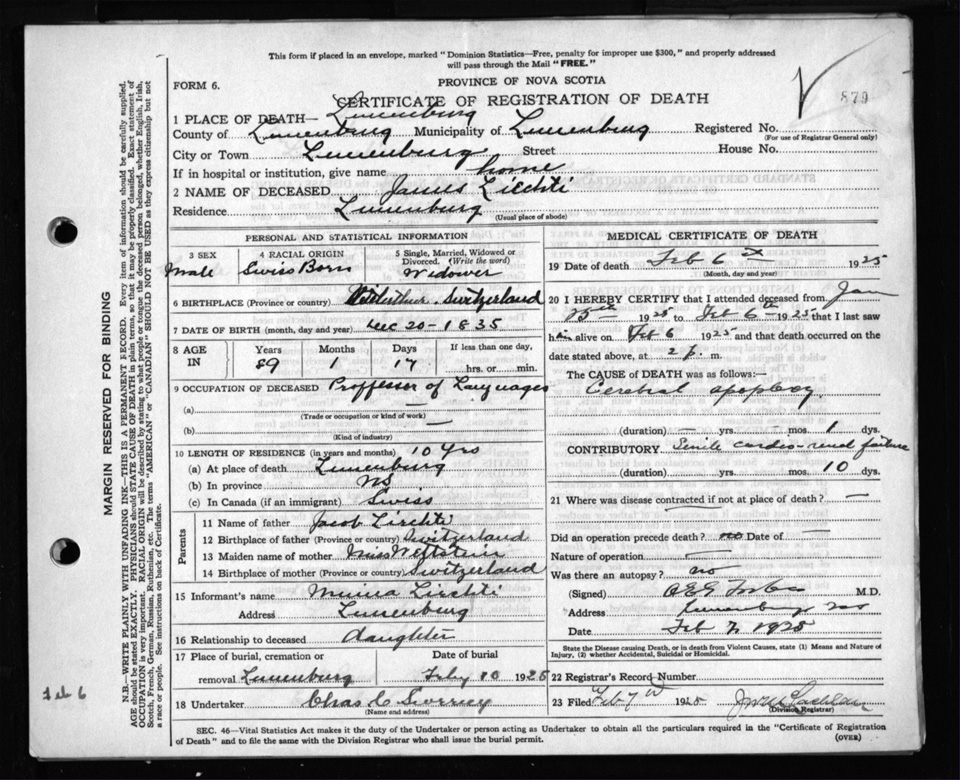 This form if placed in an envelope, marked "Dominion Statistics—Free, penalty for improper use $300," and properly addressed
will pass through the Mail "FREE."
FORM 6.
PROVINCE OF NOVA SCOTIA
879
CERTIFICATE OF REGISTRATION OF DEATH
1 PLACE OF DEATH— Lunenburg
County of Lunenburg Municipality of Lunenburg Registered No.
(For use of Registrar General only)
City or Town Lunenburg Street House No.
If in hospital or institution, give name home
2 NAME OF DECEASED James Liechti
Residence Lunenburg
(Usual place of abode)
PERSONAL AND STATISTICAL INFORMATION
3 SEX 4 RACIAL ORIGIN 5 Single, Married, Widowed or
Divorced. (Write the word)
Male Swiss Born Widower
6 BIRTHPLACE (Province or country) Switzerland
7 DATE OF BIRTH (month, day and year) Dec 20-1835
8 AGE IN Years Months Days If less than one day,
89 1 17 hrs. or min.
9 OCCUPATION OF DECEASED Proffessor of Languages
(a) —
(Trade or occupation or kind of work)
(b) —
(Kind of industry)
10 LENGTH OF RESIDENCE (in years and months) 10 Yrs
(a) At place of death Lunenburg
(b) In province NS
(c) In Canada (if an immigrant) Swiss
Parents
11 Name of father Jacob Liechti
12 Birthplace of father (Province or country) Switzerland
13 Maiden name of mother Miss Wettstein
14 Birthplace of mother (Province or country) Switzerland
15 Informant's name Minna Liechti
Address Lunenburg
16 Relationship to deceased daughter
17 Place of burial, cremation or Date of burial
removal Lunenburg Feby 10 1925
18 Undertaker Chas C
(Name and address)
MEDICAL CERTIFICATE OF DEATH
19 Date of death Feb 6 1925
(Month, day and year)
20 I HEREBY CERTIFY that I attended deceased from Jan
1925 to Feb 6th 1925 that I last saw
him alive on Feb 6 1925 and that death occurred on the
date stated above, at 2 p. m.
The CAUSE of DEATH was as follows:—
Cerebral apoplexy
(duration) — yrs. — mos. 1 dys.
CONTRIBUTORY Senile cardio-renal failure
(duration) yrs. mos. 10 dys.
21 Where was disease contracted if not at place of death? —
Did an operation precede death? no Date of —
Nature of operation —
Was there an autopsy? no
(Signed) M.D.
Address Lunenburg
Date Feb 7, 1925
State the Disease causing Death, or in death from Violent Causes, state (1) Means and Nature of
Injury, (2) whether Accidental, Suicidal or Homicidal.
22 Registrar's Record Number
23 Filed Feb 7th 1925
(Division Registrar)
SEC. 46—Vital Statistics Act makes it the duty of the Undertaker or person acting as Undertaker to obtain all the particulars required in the "Certificate of Registration
of Death" and to file the same with the Division Registrar who shall issue the burial permit.
(OVER)
MARGIN RESERVED FOR BINDING
N.B.—WRITE PLAINLY WITH UNFADING INK—THIS IS A PERMANENT RECORD. Every item of information should be carefully supplied.
AGE should be stated EXACTLY. PHYSICIANS should STATE CAUSE OF DEATH in plain terms, so that it may be properly classified. Exact statement of
OCCUPATION is very important. RACIAL ORIGIN will be described by stating to what people or tongue the deceased person belonged, whether English, Irish,
Scotch, French, German, Russian, Ruthenian, etc. The terms "AMERICAN" or "CANADIAN" SHOULD NOT BE USED as they express citizenship but not
a race or people. See instructions on back of Certificate.
Feb 6